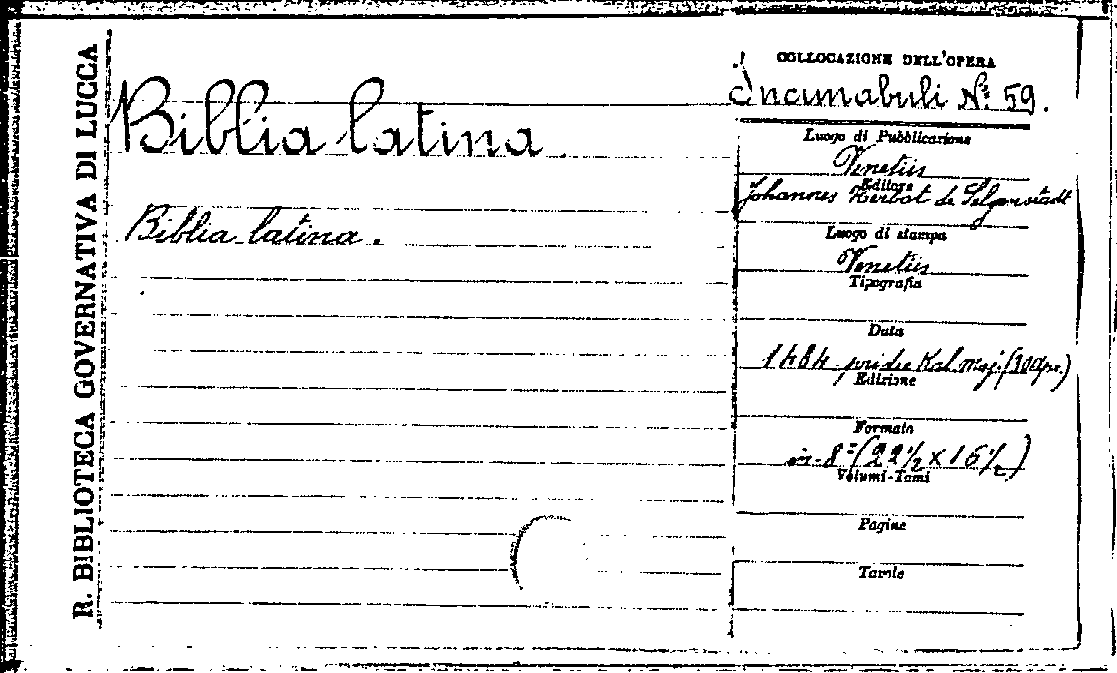 R. BIBLIOTECA GOVERNATIVA DI LUCCA
Biblia latina
Biblia latina.
COLLOCAZIONE DELL'OPERA
Incunabuli Nº 59.
Luogo di Pubblicazione
Venetiis
Editore
Johannes Herbot de Selgenstadt
Luogo di stampa
Venetiis
Tipografia
Data
1484 pridie Kal. Maj. (30 Apr.)
Edizione
Formato
in-8º (22 1/2 x 16 1/2)
Volumi-Tomi
Pagine
Tavole